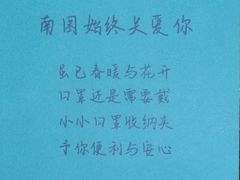 南图始终关爱你
虽已春暖与花开
口罩还是需要戴
小小口罩收纳夹
予你便利与安心